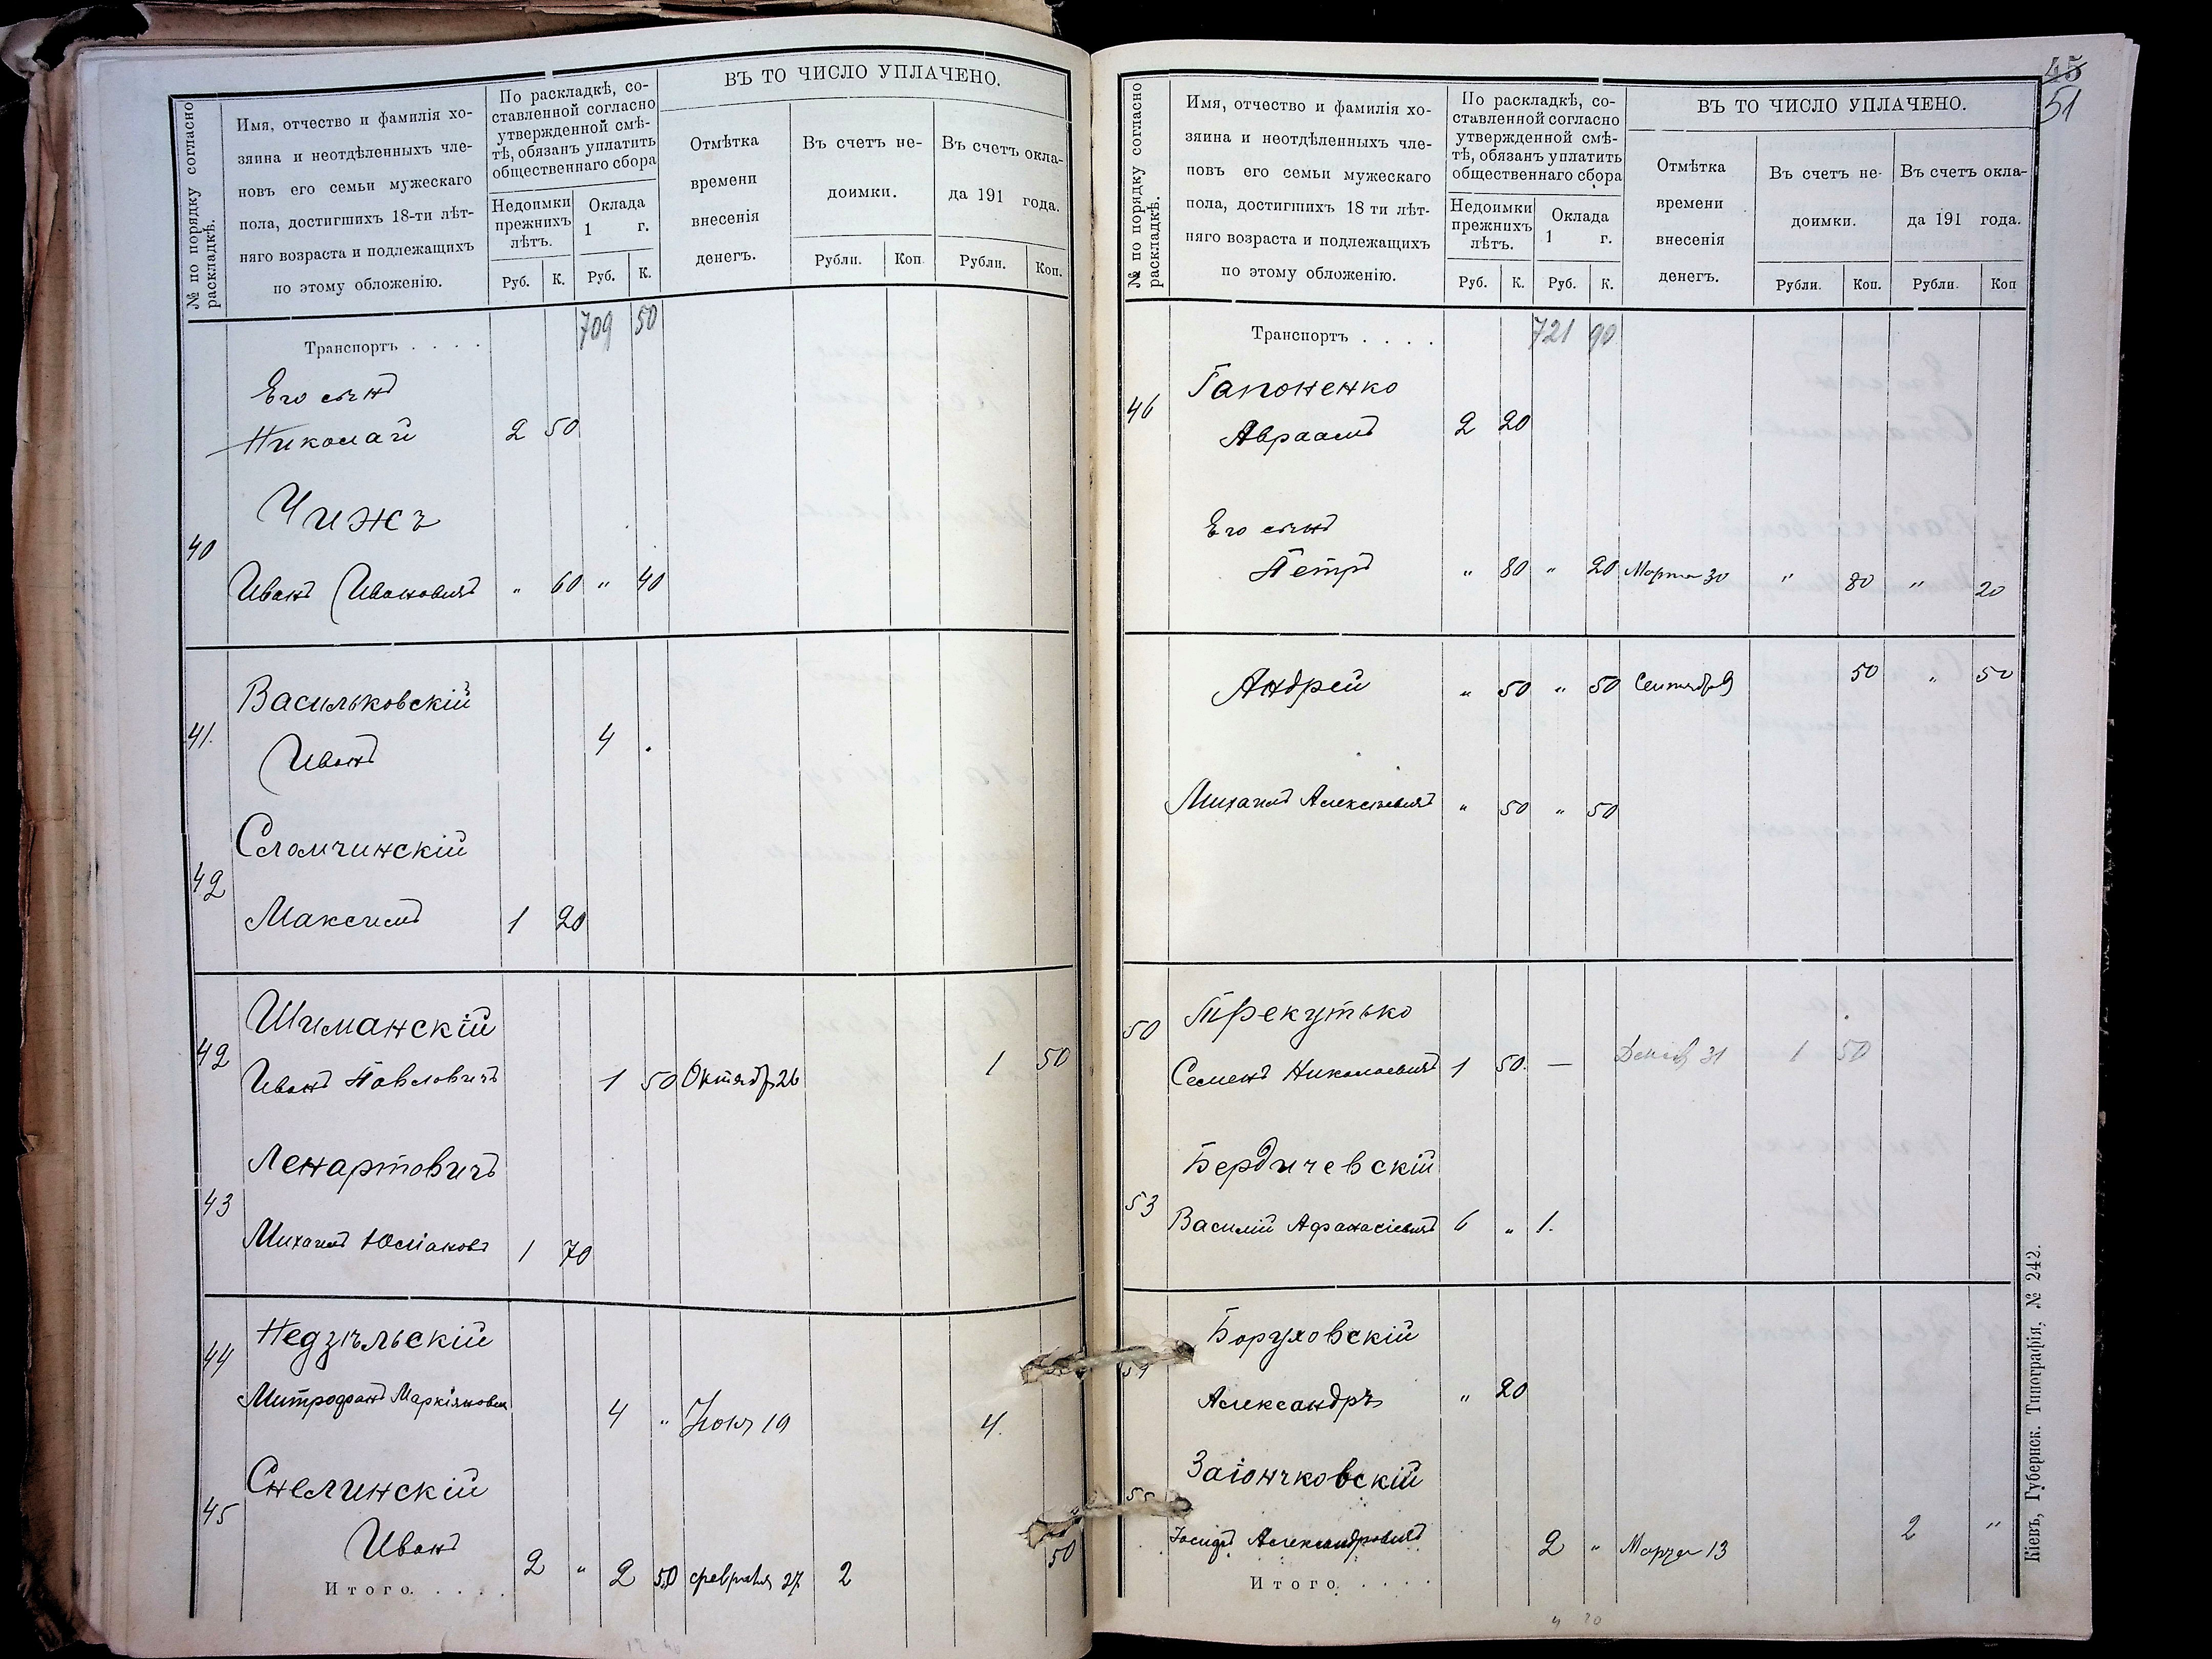 № по порядку согласно раскладкѣ.
Имя, отчество и фамилія хо-
зяина и неотдѣленныхъ чле-
новъ его семьи мужескаго
пола, достигшихъ 18-ти лѣт-
няго возраста и подлежащихъ
по этому обложенію.
По раскладкѣ, со-
ставленной согласно
утвержденной смѣ-
тѣ, обязанъ уплатить
общественнаго сбора
Недоимки
прежнихъ
лѣтъ.
Оклада
1 г.
Руб. К. Руб. К.
ВЪ ТО ЧИСЛО УПЛАЧЕНО.
Отмѣтка
времени
внесенія
денегъ.
Въ счетъ не-
доимки.
Въ счетъ окла-
да 191 года.
Рубли. Коп Рубли. Коп.
Транспортъ . . . . 709 50
Его сынъ
Николай 2 50
Чижъ
40
Иванъ Ивановичъ " 60 " 40
Васильковскій
41. 4 .
Иванъ
Сломчинскій
42
Максимъ 1 20
Шиманскій
42
Иванъ Павловичъ 1 50 Октябр 26 1 50
Ленартовичъ
43
Михаилъ Юліановъ 1 70
Недзѣльскій
44
Митрофанъ Маркіянович 4 " Іюня 19 4.
Снелинскій
45
Иванъ 2 " 2 50 февраля 27 2 50
Итого. . . . .
45
51
№ по порядку согласно раскладкѣ.
Имя, отчество и фамилія хо-
зяина и неотдѣленныхъ чле-
новъ его семьи мужескаго
пола, достигшихъ 18 ти лѣт-
няго возраста и подлежащихъ
по этому обложенію.
По раскладкѣ, со-
ставленной согласно
утвержденной смѣ-
тѣ, обязанъ уплатить
общественнаго сбора
Недоимки
прежнихъ
лѣтъ.
Оклада
1 г.
Руб. К. Руб. К.
ВЪ ТО ЧИСЛО УПЛАЧЕНО.
Отмѣтка
времени
внесенія
денегъ.
Въ счетъ не-
доимки.
Въ счетъ окла-
да 191 года.
Рубли. Коп. Рубли. Коп
Транспортъ . . . . 721 90
Гапоненко
46
Авраамъ 2 20
Его сынъ
Петръ " 80 " 20 Марта 30 " 80 " 20
Андрей " 50 " 50 Сентябр 9 50 " 50
Михаилъ Алексѣевичъ " 50 " 50
Трекутько
50
Семенъ Николаевичъ 1 50. — Декаб 31 1 50
Бердичевскій
53
Василій Афанасіевичъ 6 " 1.
Боруховскій
54
Александръ " 20
Заіончковскій
55
Іосифъ Александровичъ 2 " Марта 13 2 "
Итого . . . .
4 20
Кіевъ, Губернск. Типографія, № 242.